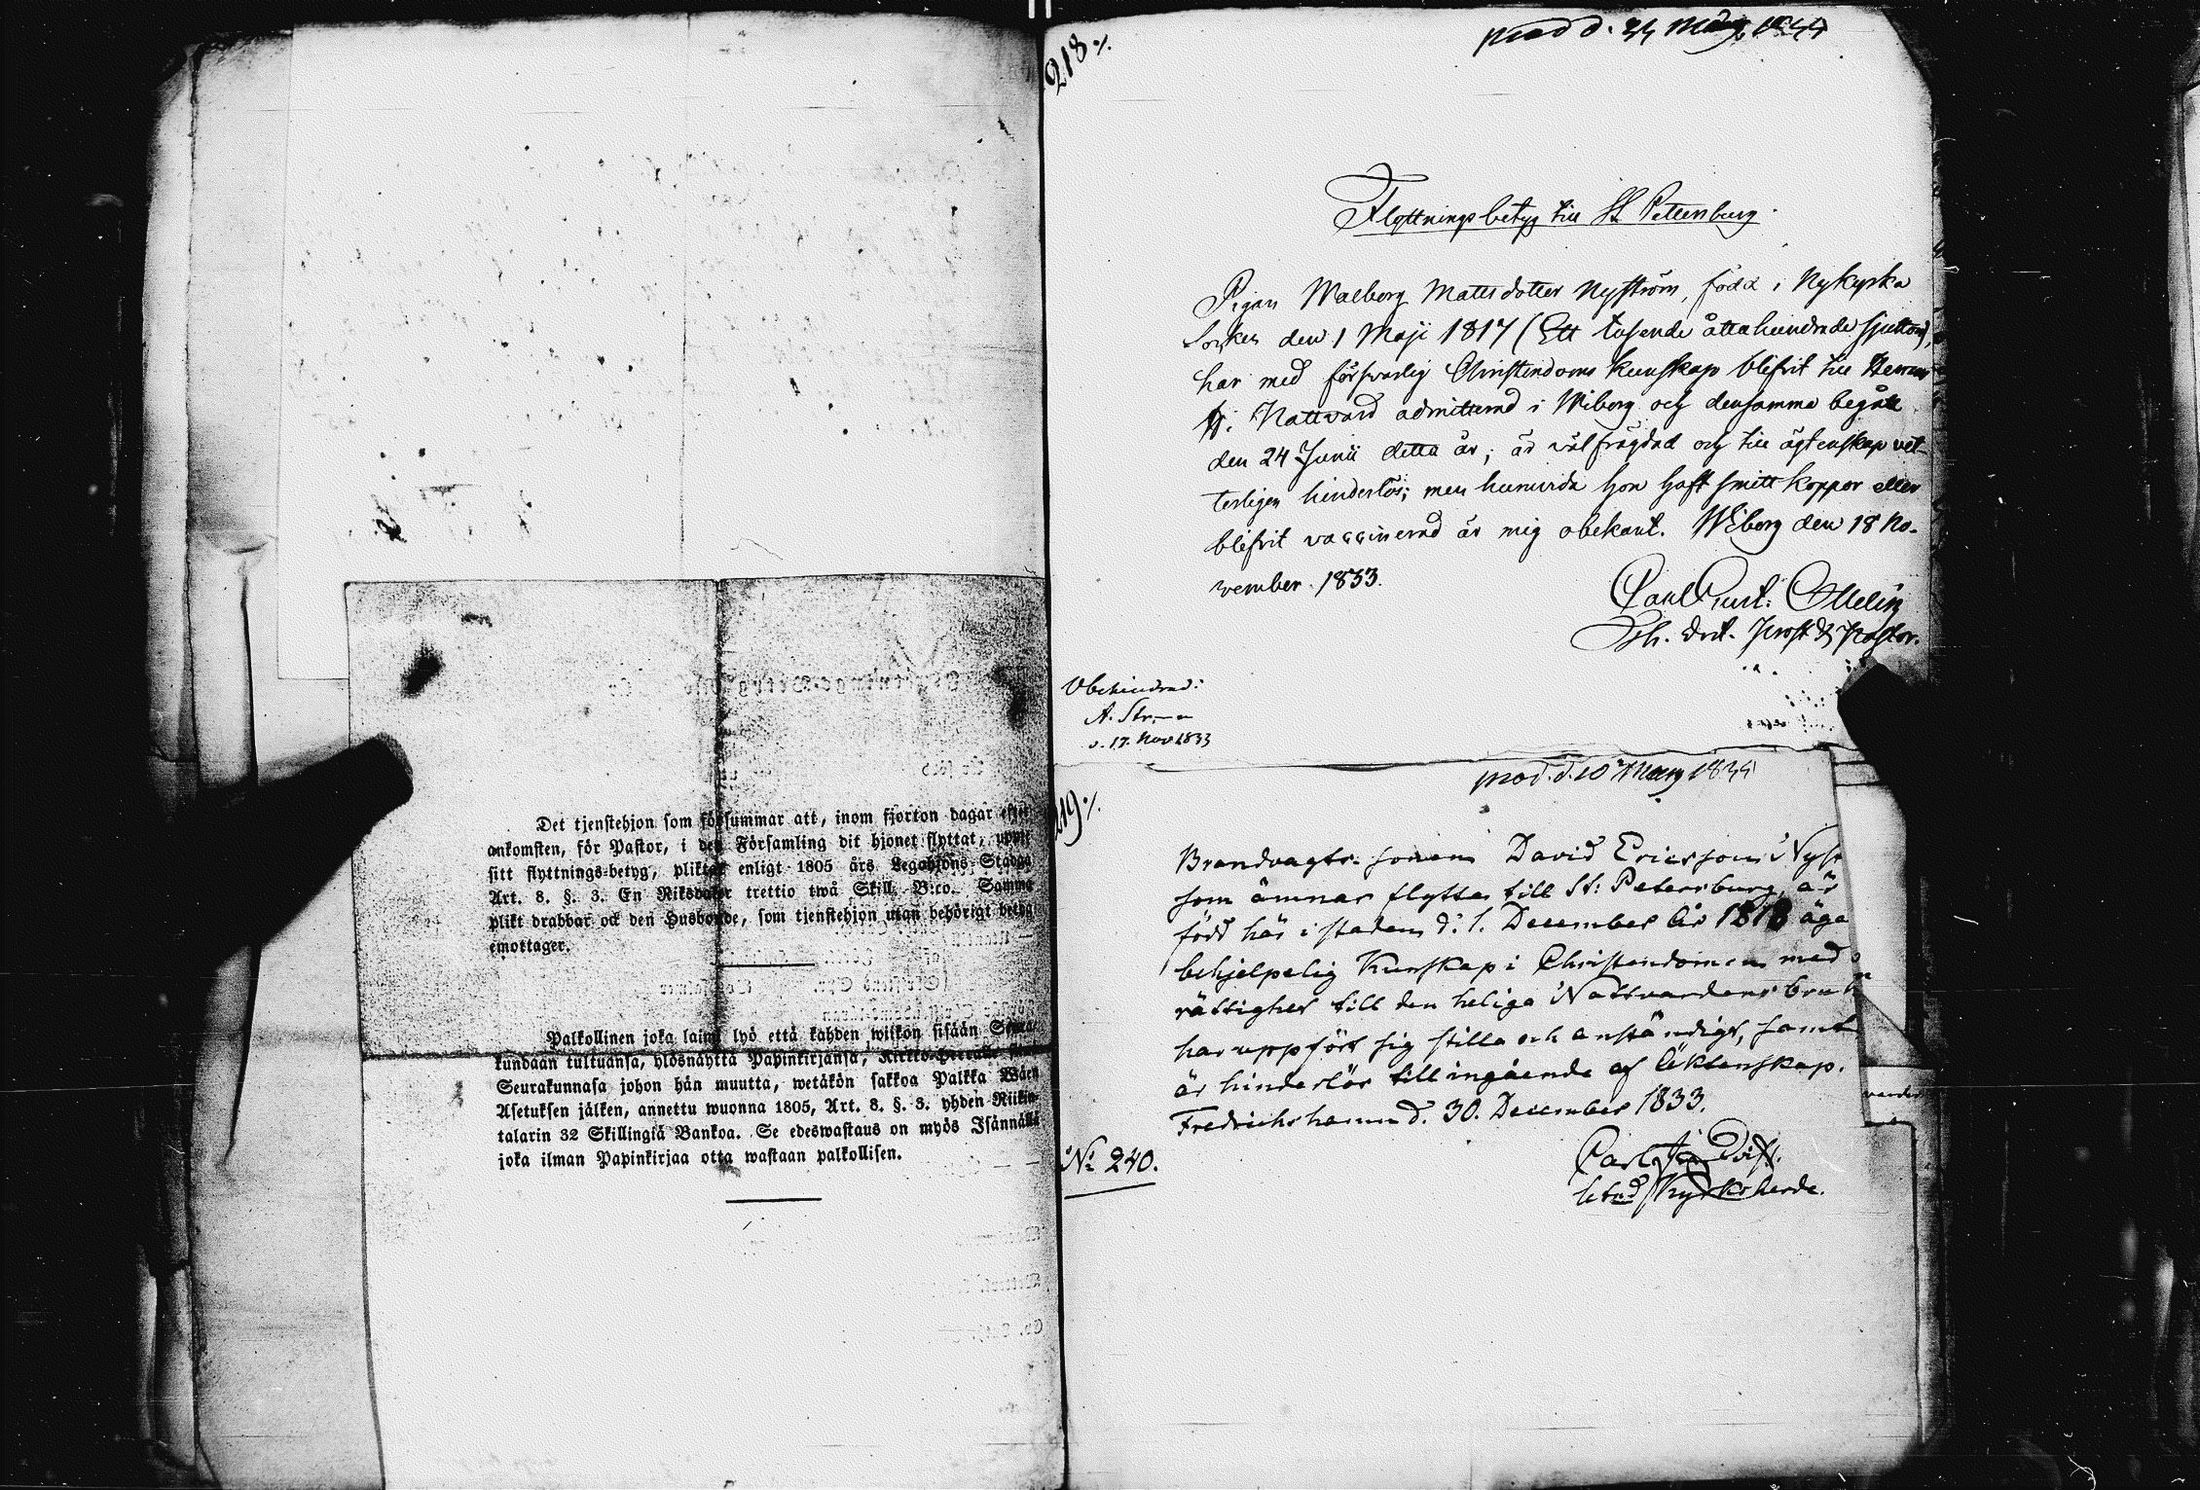 Det tjenstehjon som försummar att, inom fjorton dagar efter
ankomsten, för Pastor, i den Församling dit hjonet flyttat, uppte
sitt flyttnings-betyg, pliktar enligt 1805 års Legohjons Stadga
Art. 8. §. 3. En Riksdaler trettio twå Skill. B:co. Samma
plikt drabbar ock den Husbonde, som tjenstehjon utan behörigt betyg
emottager.
Palkollinen joka laimi lyö että kahden wiikon sisään Seura-
kundaan tultuansa, ylösnäyttä Papinkirjansa, Kirkko-Herralle siinä
Seurakunnasa johon hän muutta, wetäkön sakkoa Palkka Wäen
Asetuksen jälken, annettu wuonna 1805, Art. 8. §. 3. yhden Riikin-
talarin 32 Skillingiä Bankoa. Se edeswastaus on myös Isännällä
joka ilman Papinkirjaa otta wastaan palkollisen.
218 ⁒
prod d. 24 Marz 1834
Flyttningsbetyg till St Petersburg.
Pigan Walborg Mattsdotter Nyström, född i Nykyrka
Socken den 1 Maji 1817 (Ett tusende åttahundrade sjutton),
har med försvarlig Christendoms kunskap blifvit till Herrans
H. Nattvard admitterad i Wiborg och densamma begått
den 24 Junii detta år; är välfrägdad och till ägtenskap vet-
terligen hinderlös; men huruvida hon haft smittkoppor eller
blifvit vaccinerad är mig obekant. Wiborg den 18 No-
vember 1833.
Carl Gust. Ottelin
Th. Doct. Prost & Pastor.
Obehindrad:
d. 17. Nov 1833
prod. d. 10 Marz 1834
219 ⁒
Brandvagts-sonen David Ericsson Nyst
som ämnar flytta till St: Petersburg, är
född här i staden d: 1. December år 1818 äga
behjelpelig Kunskap i Christendomen med
rättighet till den heliga Nattvardens bruk
har uppfört sig stilla och anständigt, samt
är hinderlös till ingående af Äktenskap.
Fredrichshamn d. 30. December 1833.
No 240.
Carl
Kyrkoherde.